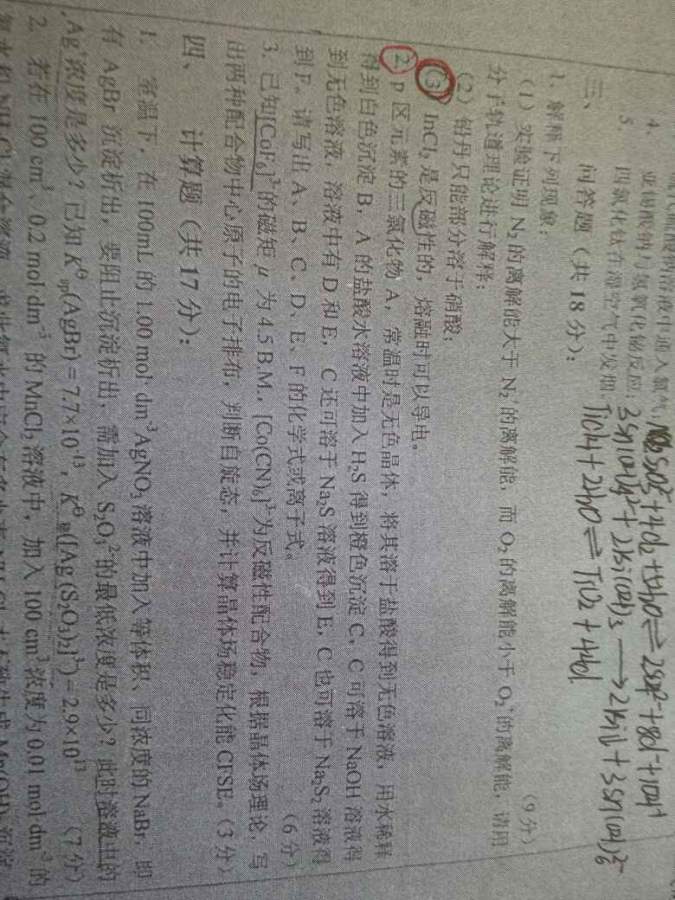 4. 亚锡酸钠与氢氧化铋反应; 3Sn(OH)4²⁻+2Bi(OH)3→2Bi↓+3Sn(OH)6²⁻
5. 四氯化钛在湿空气中发烟. TiCl4+2H2O⇌TiO2+4HCl
三、 问答题(共18分):
1. 解释下列现象: (9分)
(1)实验证明 N₂的离解能大于 N₂⁺的离解能,而 O₂的离解能小于 O₂⁺的离解能,请用
分子轨道理论进行解释;
(2)铅丹只能部分溶于硝酸;
(3) InCl₂是反磁性的,熔融时可以导电。
2. P 区元素的三氯化物 A,常温时是无色晶体,将其溶于盐酸得到无色溶液,用水稀释
得到白色沉淀 B,A 的盐酸水溶液中加入 H₂S 得到橙色沉淀 C,C 可溶于 NaOH 溶液得
到无色溶液,溶液中有 D 和 E,C 还可溶于 Na₂S 溶液得到 E,C 也可溶于 Na₂S₂溶液得
到 F。请写出 A、B、C、D、E、F 的化学式或离子式。 (6分)
3. 已知[CoF₆]³⁻的磁矩 μ 为 4.5 B.M.,[Co(CN)₆]³⁻为反磁性配合物,根据晶体场理论,写
出两种配合物中心原子的电子排布,判断自旋态,并计算晶体场稳定化能 CFSE。(3分)
四、 计算题(共17分):
1. 室温下,在 100mL 的 1.00 mol·dm⁻³AgNO₃溶液中加入等体积、同浓度的 NaBr,即
有 AgBr 沉淀析出,要阻止沉淀析出,需加入 S₂O₃²⁻的最低浓度是多少?此时溶液中的
Ag⁺浓度是多少?已知 K^θsp(AgBr)=7.7×10⁻¹³,K^θ稳([Ag(S₂O₃)₂]³⁻)=2.9×10¹³ (7分)
2. 若在 100 cm³、0.2 mol·dm⁻³的 MnCl₂溶液中,加入 100 cm³浓度为 0.01 mol·dm⁻³的